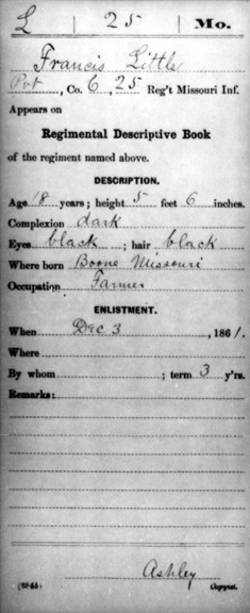 L | 25 | Mo.
Francis Little
Pvt, Co. C, 25 Reg't Missouri Inf.
Appears on
Regimental Descriptive Book
of the regiment named above.
DESCRIPTION.
Age 18 years; height 5 feet 6 inches.
Complexion dark
Eyes black; hair black
Where born Boone Missouri
Occupation Farmer
ENLISTMENT.
When Dec 3, 1861.
Where
By whom ; term 3 y'rs.
Remarks:
Ashley
Copyist.